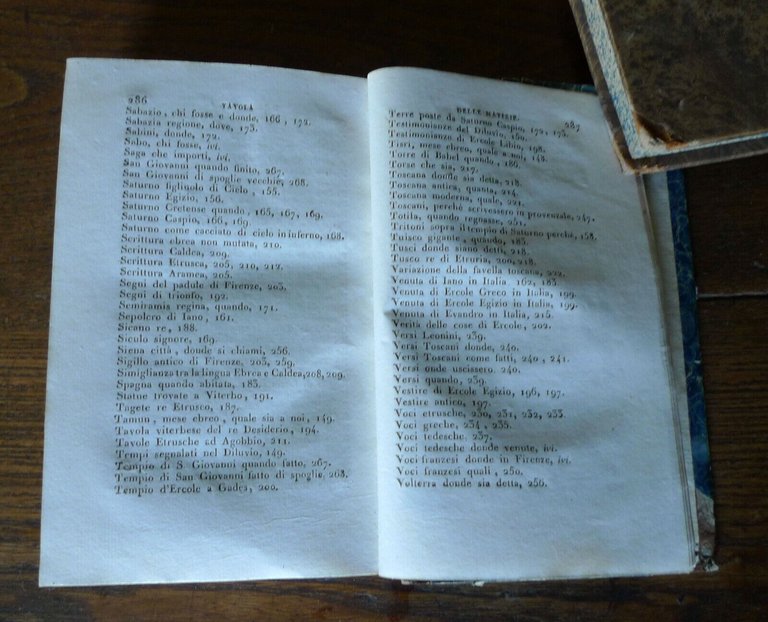 286
TAVOLA
Sabazio, chi fosse e donde, 166, 172.
Sabazia regione, dove, 173.
Sabini, donde, 172.
Sabo, chi fosse, ivi.
Saga che importi, ivi.
San Giovanni quando finito, 267.
San Giovanni di spoglie vecchie, 268.
Saturno figliuolo di Cielo, 155.
Saturno Egizio, 156.
Saturno Cretense quando, 165, 167, 169.
Saturno Caspio, 166, 169.
Saturno come cacciato di cielo in inferno, 168.
Scrittura ebrea non mutata, 210.
Scrittura Caldea, 209.
Scrittura Etrusca, 205, 210, 212.
Scrittura Aramea, 205.
Segni del padule di Firenze, 203.
Segni di trionfo, 192.
Semiramia regina, quando, 171.
Sepolcro di Iano, 161.
Sicano re, 188.
Siculo signore, 169.
Siena città, donde si chiami, 256.
Sigillo antico di Firenze, 203, 259.
Simiglianza tra la lingua Ebrea e Caldea, 208, 209.
Spagna quando abitata, 183.
Statue trovate a Viterbo, 191.
Tagete re Etrusco, 187.
Tamun, mese ebreo, quale sia a noi, 149.
Tavola viterbese del re Desiderio, 194.
Tavole Etrusche ad Agobbio, 211.
Tempi segnalati nel Diluvio, 149.
Tempio di S. Giovanni quando fatto, 267.
Tempio di San Giovanni fatto di spoglie, 268.
Tempio d'Ercole a Gades, 200.
DELLE MATERIE.
287
Terre poste da Saturno Caspio, 172, 173.
Testimonianze del Diluvio, 150.
Testimonianza di Ercole Libio, 198.
Tisri, mese ebreo, quale a noi, 148.
Torre di Babel quando, 186.
Torse che sia, 217.
Toscana donde sia detta, 218.
Toscana antica, quanta, 214.
Toscana moderna, quale, 221.
Toscani, perchè scrivessero in provenzale, 247.
Totila, quando regnasse, 251.
Tritoni sopra il tempio di Saturno perchè, 158.
Tuisco gigante, quando, 183.
Tusci donde siano detti, 218.
Tusco re di Etruria, 200, 218.
Variazione della favella toscana, 222.
Venuta di Iano in Italia, 162, 183
Venuta di Ercole Greco in Italia, 199.
Venuta di Ercole Egizio in Italia, 199.
Venuta di Evandro in Italia, 215.
Verità delle cose di Ercole, 202.
Versi Leonini, 239.
Versi Toscani donde, 240.
Versi Toscani come fatti, 240, 241.
Versi onde uscissero, 240.
Versi quando, 239.
Vestire di Ercole Egizio, 196, 197.
Vestire antico, 197.
Voci etrusche, 230, 231, 232, 233.
Voci greche, 234, 235.
Voci tedesche, 237.
Voci tedesche donde venute, ivi.
Voci franzesi donde in Firenze, ivi.
Voci franzesi quali, 250.
Volterra donde sia detta, 256.